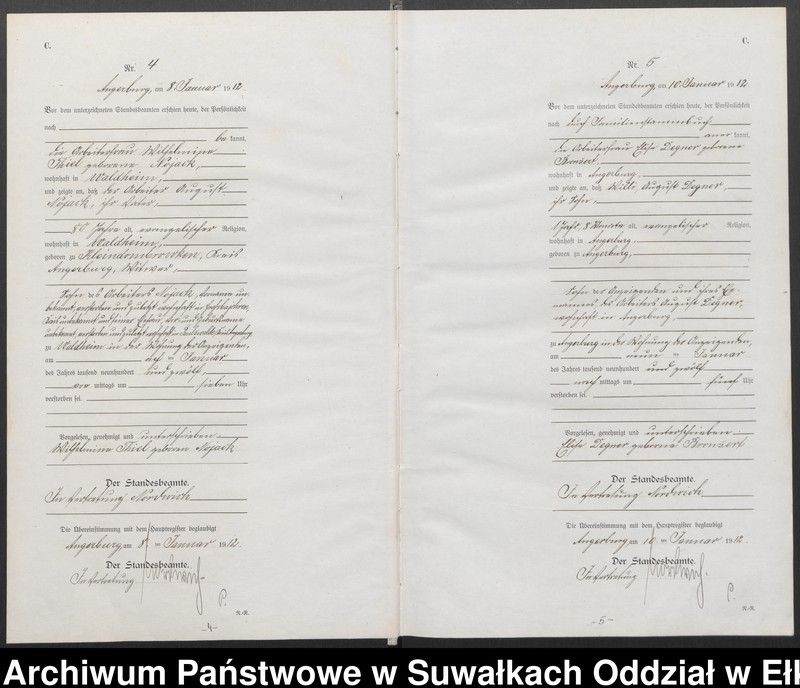 C.
Nr. 4
Angerburg, am 8. Januar 1912.
Vor dem unterzeichneten Standesbeamten erschien heute, der Persönlichkeit
nach
be kannt,
die Arbeiterfrau Wilhelmine
Thiel geborene Nojack,
wohnhaft in Waldheim,
und zeigte an, daß der Arbeiter August
Nojack, ihr Vater,
80 Jahre alt, evangelischer Religion,
wohnhaft in Waldheim,
geboren zu Kleindombrowken, Kreis
Angerburg, Witwer,
Sohn des Arbeiters Nojack, Vorname un-
bekannt, verstorben und zuletzt wohnhaft in
zu Waldheim in der Wohnung der Anzeigenden,
am ten Januar
des Jahres tausend neunhundert und zwölf
vor mittags um sieben Uhr
verstorben sei.
Vorgelesen, genehmigt und unterschrieben
Wilhelmine Thiel geborene Nojack
Der Standesbeamte.
In Vertretung Nordwich
Die Übereinstimmung mit dem Hauptregister beglaubigt
Angerburg, am 8. ten Januar 1912.
Der Standesbeamte.
In Vertretung
P.
N.-R.
-4-
C.
Nr. 5
Angerburg, am 10. Januar 1912.
Vor dem unterzeichneten Standesbeamten erschien heute, der Persönlichkeit
nach durch Familienstammbuch
aner kannt,
die Arbeiterfrau Elise Degner geborene
wohnhaft in Angerburg,
und zeigte an, daß Willi August Degner,
ihr Sohn,
1 Jahr, 8 Monate alt, evangelischer Religion,
wohnhaft in Angerburg,
geboren zu Angerburg,
Sohn der Anzeigenden und ihres Ehe-
mannes des Arbeiters August Degner,
wohnhaft in Angerburg.
zu Angerburg in der Wohnung der Anzeigenden,
am neun ten Januar
des Jahres tausend neunhundert und zwölf
nach mittags um fünf Uhr
verstorben sei.
Vorgelesen, genehmigt und unterschrieben
Elise Degner geborene
Der Standesbeamte.
In Vertretung Nordwich
Die Übereinstimmung mit dem Hauptregister beglaubigt
Angerburg, am 10. ten Januar 1912.
Der Standesbeamte.
In Vertretung
P.
N.-R.
-5-
Archiwum Państwowe w Suwałkach Oddział w Ełk